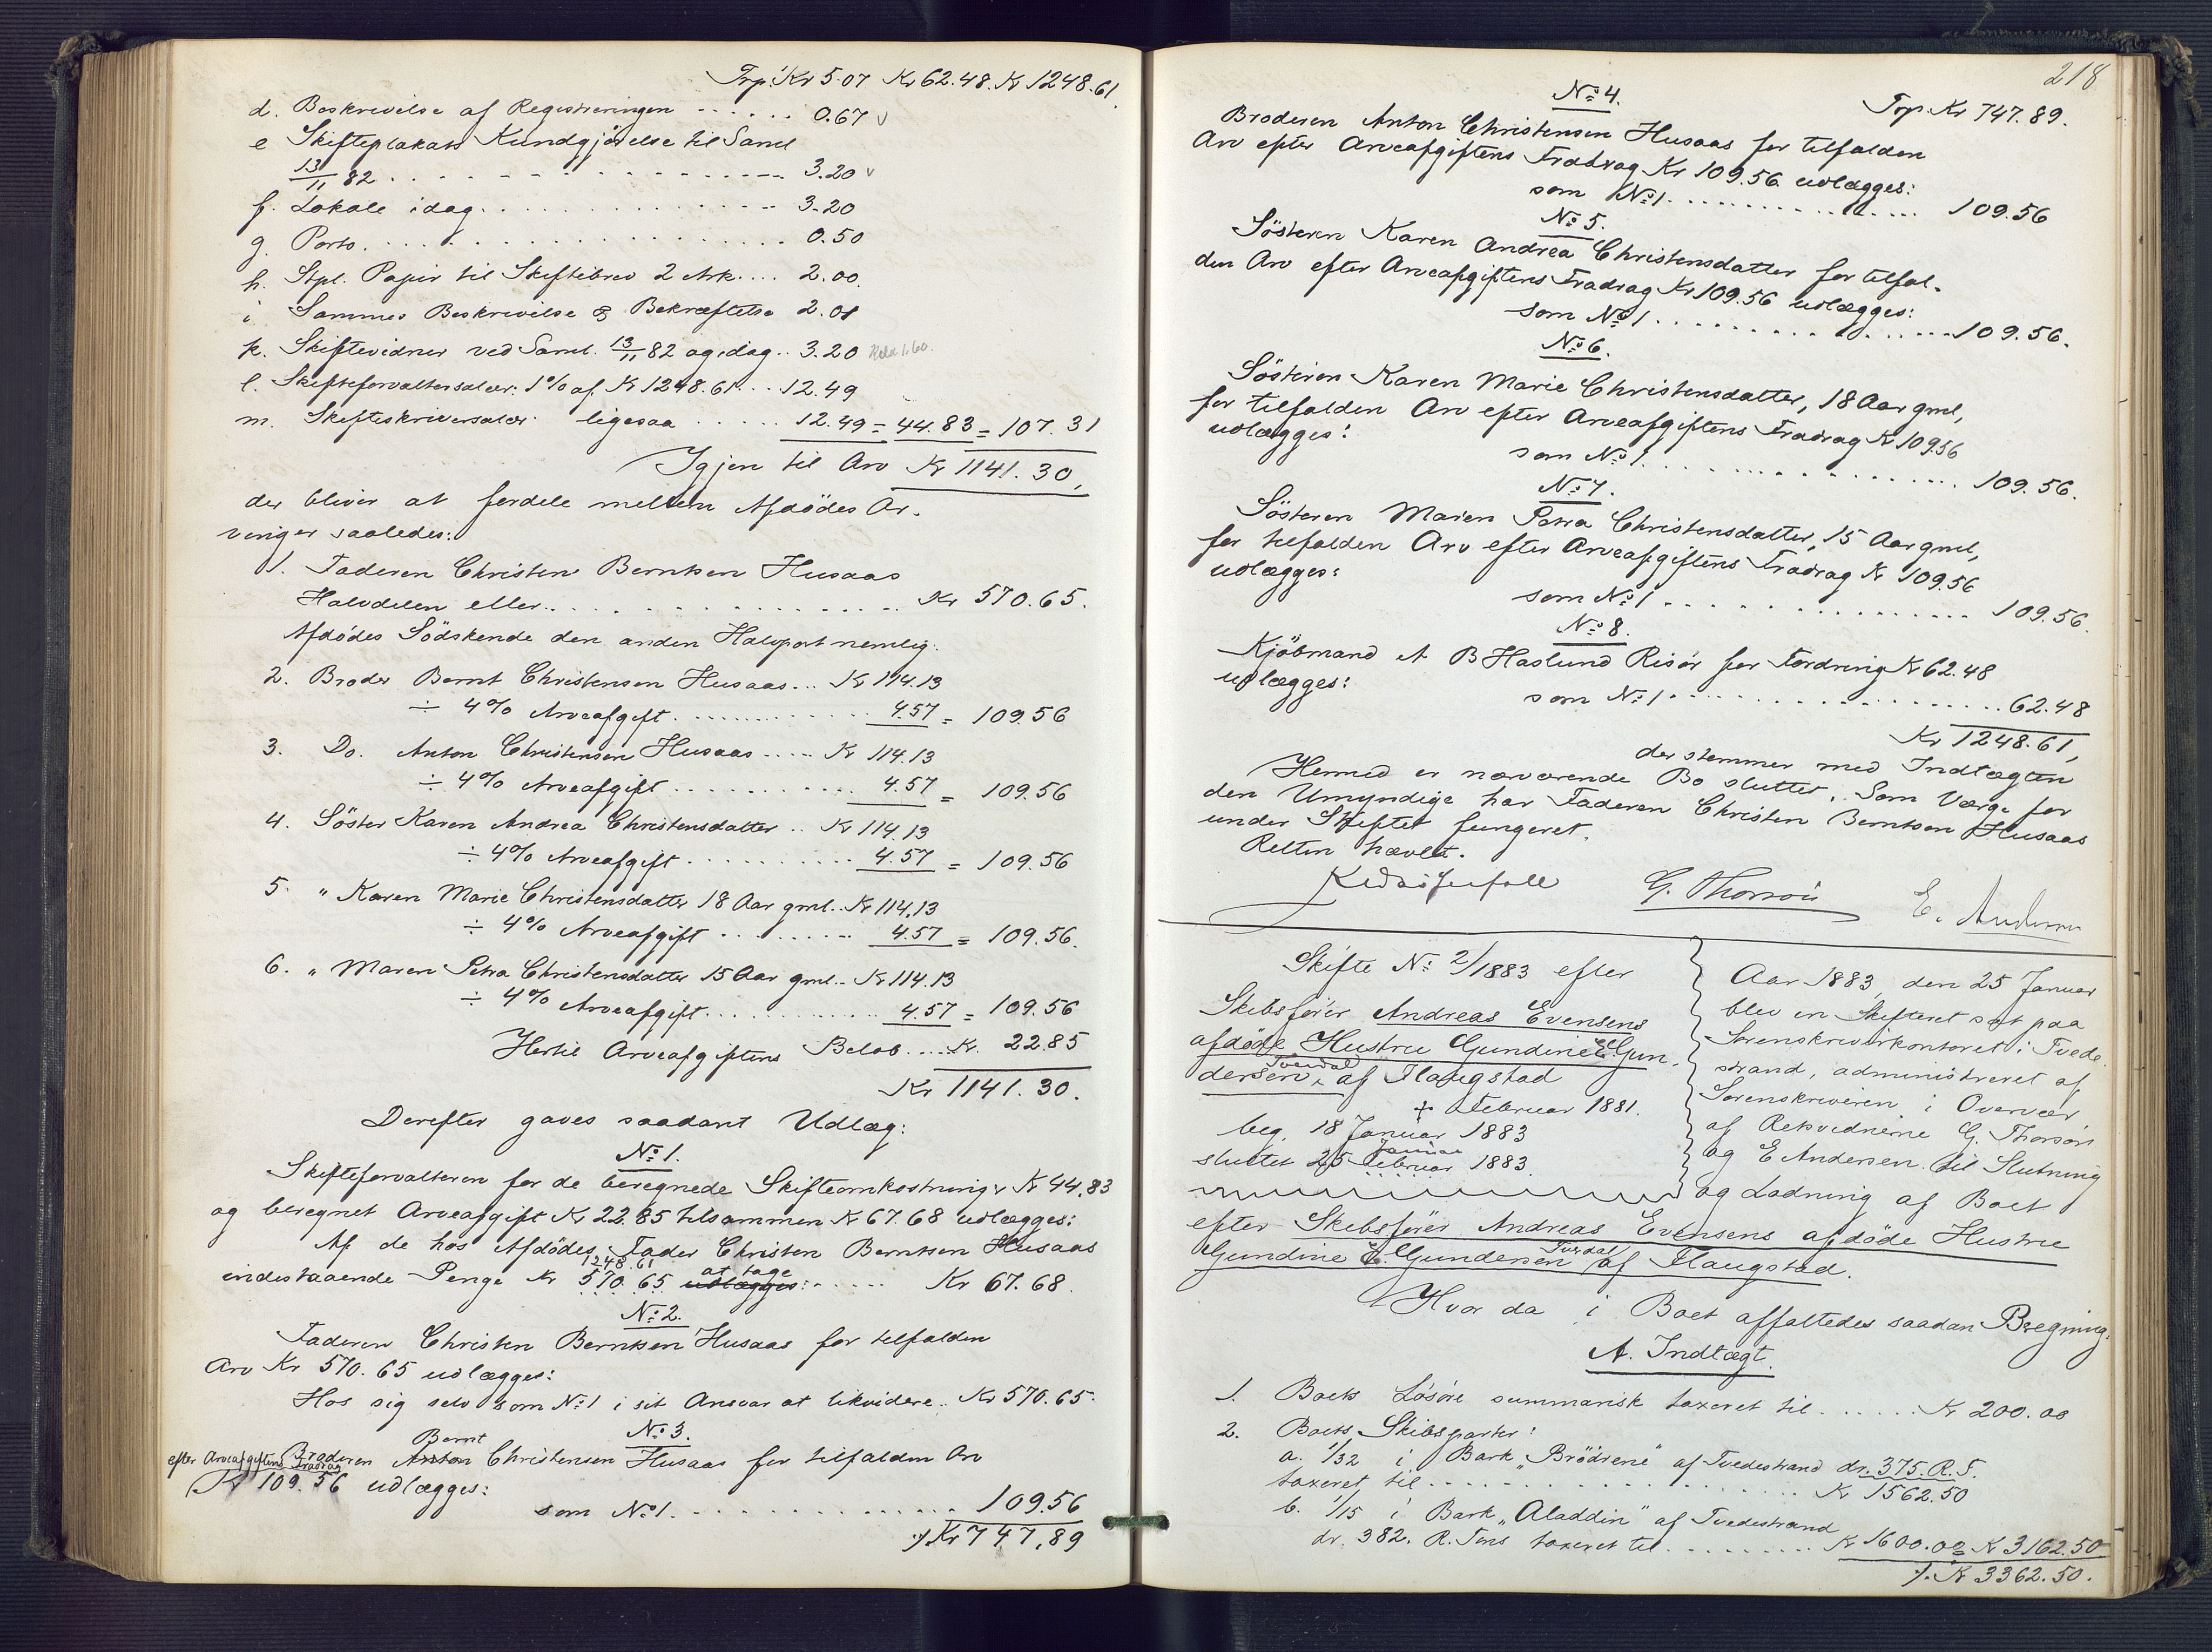 Trp. Kr 5.07 Kr 62.48. Kr 1248.61.
d. Beskrivelse af Registreringen ...... 0.67 v
e Skifteplakats Kundgjörelse til Saml
13/11 82 ........ 3.20 v
f. Lokale idag ........ 3.20
g. Porto ........ 0.50
h. Stpl. Papir til Skiftebrev 2 Ark .... 2.00.
i Sammes Beskrivelse & Bekræftelse 2.01
k. Skiftevidner ved Saml. 13/11 82 og idag .. 3.20
l. Skifteforvaltersalær: 1% af Kr 1248.61 ... 12.49
m. Skifteskriversalær ligesaa ..... 12.49 = 44.83 = 107.31
Igjen til Arv Kr 1141.30,
der bliver at fordele mellem Afdödes Ar-
vinger saaledes:
1. Faderen Christen Berntsen Husaas
Halvdelen eller ........ Kr 570.65.
Afdödes Södskende den anden Halvpart nemlig:
2. Broder Bernt Christensen Husaas ... Kr 114.13
÷ 4% Arveafgift ........ 4.57 = 109.56
3. Do. Anton Christensen Husaas .... Kr 114.13
÷ 4% Arveafgift ........ 4.57 = 109.56
4. Söster Karen Andrea Christensdatter .. Kr 114.13
÷ 4% Arveafgift ........ 4.57 = 109.56
5. " Karen Marie Christensdatter 18 Aar gml. .. Kr 114.13
÷ 4% Arveafgift ........ 4.57 = 109.56.
6. " Maren Petra Christensdatter 15 Aar gml. .. Kr 114.13
÷ 4% Arveafgift ........ 4.57 = 109.56
Hertil Arveafgiftens Belöb ..... Kr. 22.85
Kr 1141.30.
Derefter gaves saadant Udlæg:
No 1.
Skifteforvalteren for de beregnede Skifteomkostninger Kr 44.83
og beregnet Arveafgift Kr 22.85 tilsammen Kr 67.68 udlægges:
Af de hos Afdödes Fader Christen Berntsen Husaas
1248.61 at tage
indestaaende Penge Kr 570.65 udlægges: ..... Kr 67.68.
No 2.
Faderen Christen Berntsen Husaas for tilfalden
Arv Kr 570.65 udlægges:
Hos sig selv som No 1 i sit Ansvar at likvidere .. Kr 570.65.
No 3.
Bernt
Broderen Anton Christensen Husaas for tilfalden Arv
efter Arveafgiftens Fradrag
Kr 109.56 udlægges:
som No 1 ........ 109.56
./. Kr 747.89
218
No 4.
Trp. Kr 747.89.
Broderen Anton Christensen Husaas for tilfalden
Arv efter Arveafgiftens Fradrag Kr 109.56 udlægges:
som No 1 ........ 109.56
No 5.
Sösteren Karen Andrea Christensdatter for tilfal-
den Arv efter Arveafgiftens Fradrag Kr 109.56 udlægges:
som No 1 ........ 109.56.
No 6.
Sösteren Karen Marie Christensdatter, 18 Aar gml,
for tilfalden Arv efter Arveafgiftens Fradrag Kr 109.56
udlægges:
som No 1 ........ 109.56.
No 7.
Sösteren Maren Petra Christensdatter, 15 Aar gml,
for tilfalden Arv efter Arveafgiftens Fradrag Kr 109.56
udlægges:
som No 1 ........ 109.56.
No 8.
Kjöbmand A B Haslund Risör for Fordring Kr 62.48
udlægges:
som No 1 ........ 62.48
Kr 1248.61,
der stemmer med Indtægten
Hermed er nærværende Bo sluttet. Som Værge for
den Umyndige har Faderen Christen Berntsen Husaas
under Skiftet fungeret.
Retten hævet.
G. Thorsön E. Andersen
Skifte No 2/1883 efter
Skibsförer Andreas Evensens
afdöde Hustru Gundine E. Gun-
Tverdal
dersen, af Flaugstad
+ Februar 1881.
beg. 18 Januar 1883
Januar
sluttet 25 Februar 1883.
Aar 1883, den 25 Januar
blev en Skifteret sat paa
Sorenskriverkontoret i Tvede-
strand, administreret af
Sorenskriveren i Overvær
af Retsvidnerne G. Thorsön
og E Andersen til Slutning
og Lodning af Boet
efter Skibsförer Andreas Evensens afdöde Hustru
Tverdal
Gundine E. Gundersen af Flaugstad.
Hvor da i Boet affattedes saadan Beregning:
A. Indtægt.
1. Boets Lösöre summarisk taxeret til ...... Kr 200.00
2. Boets Skibsparter:
a. 1/32 i Bark "Brödrene" af Tvedestrand dr. 375. R.T.
taxeret til ........ Kr 1562.50
b. 1/15 i Bark "Aladdin" af Tvedestrand
dr. 382. R. Tons taxeret til ........ Kr 1600.00 = Kr 3162.50
./. Kr 3362.50.